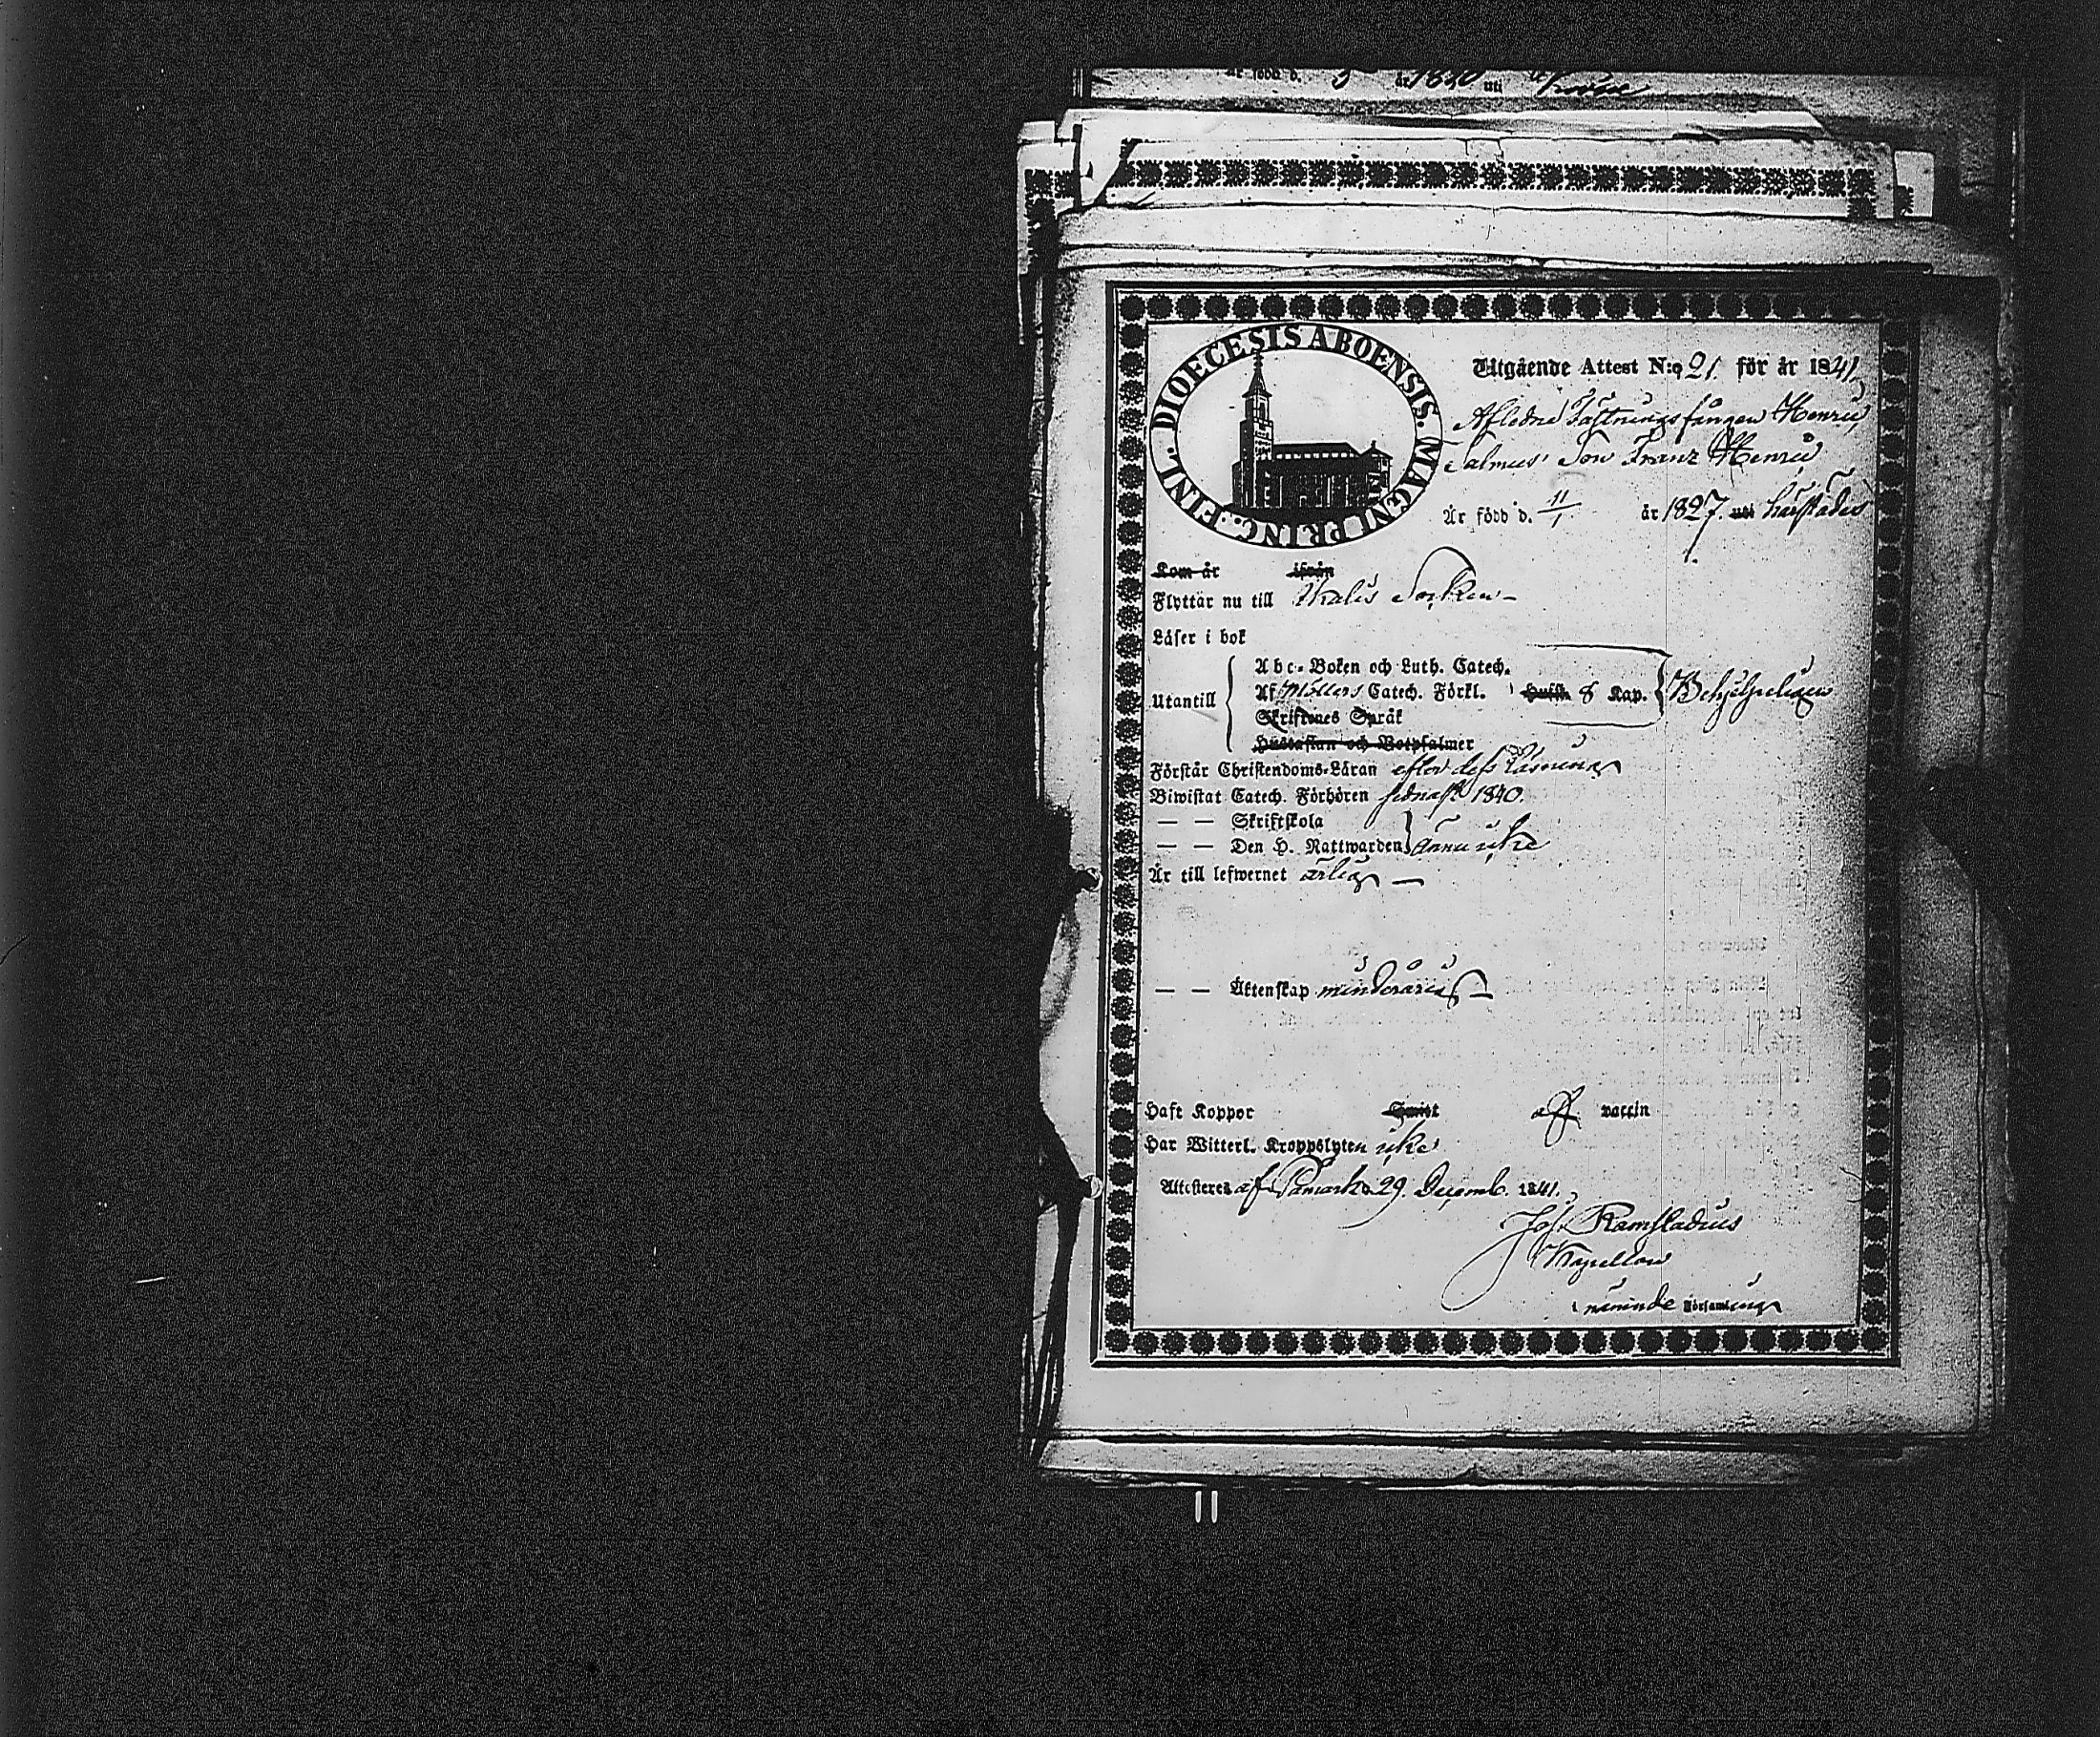 är född d. 5 år 1810 uti
DIOECESIS ABOENSIS. MAGNI PRINC. FINL.
Utgående Attest N:o 21. för år 1841.
Aflidne Fästningsfången Henric
Salmus' Son Franz Henric
Är född d. 11/1 år 1827. uti härstädes
Kom år ifrån
Flyttar nu till Ikalis Socken
Läser i bok
Utantill
Abc-Boken och Luth. Catech.
Af Möllers Catech. Förkl. Hussh. & Kap. Behjelpeligen
Skriftenes Språk
Hustaflan och Botpsalmer
Förstår Christendoms-Läran efter dess läsning
Biwistat Catech. Förhören sednast 1840.
— — Skriftskola
— — Den H. Nattwarden ännu icke
Är till lefwernet ärlig —
— — Äktenskap minderårig —
Haft Koppor af vaccin
Har Witterl. Kroppslyten icke
Attesteres af Påmark d. 29. Decemb. 1841.
Jos. Ramstadius
Kapellan
i nämnde Församling